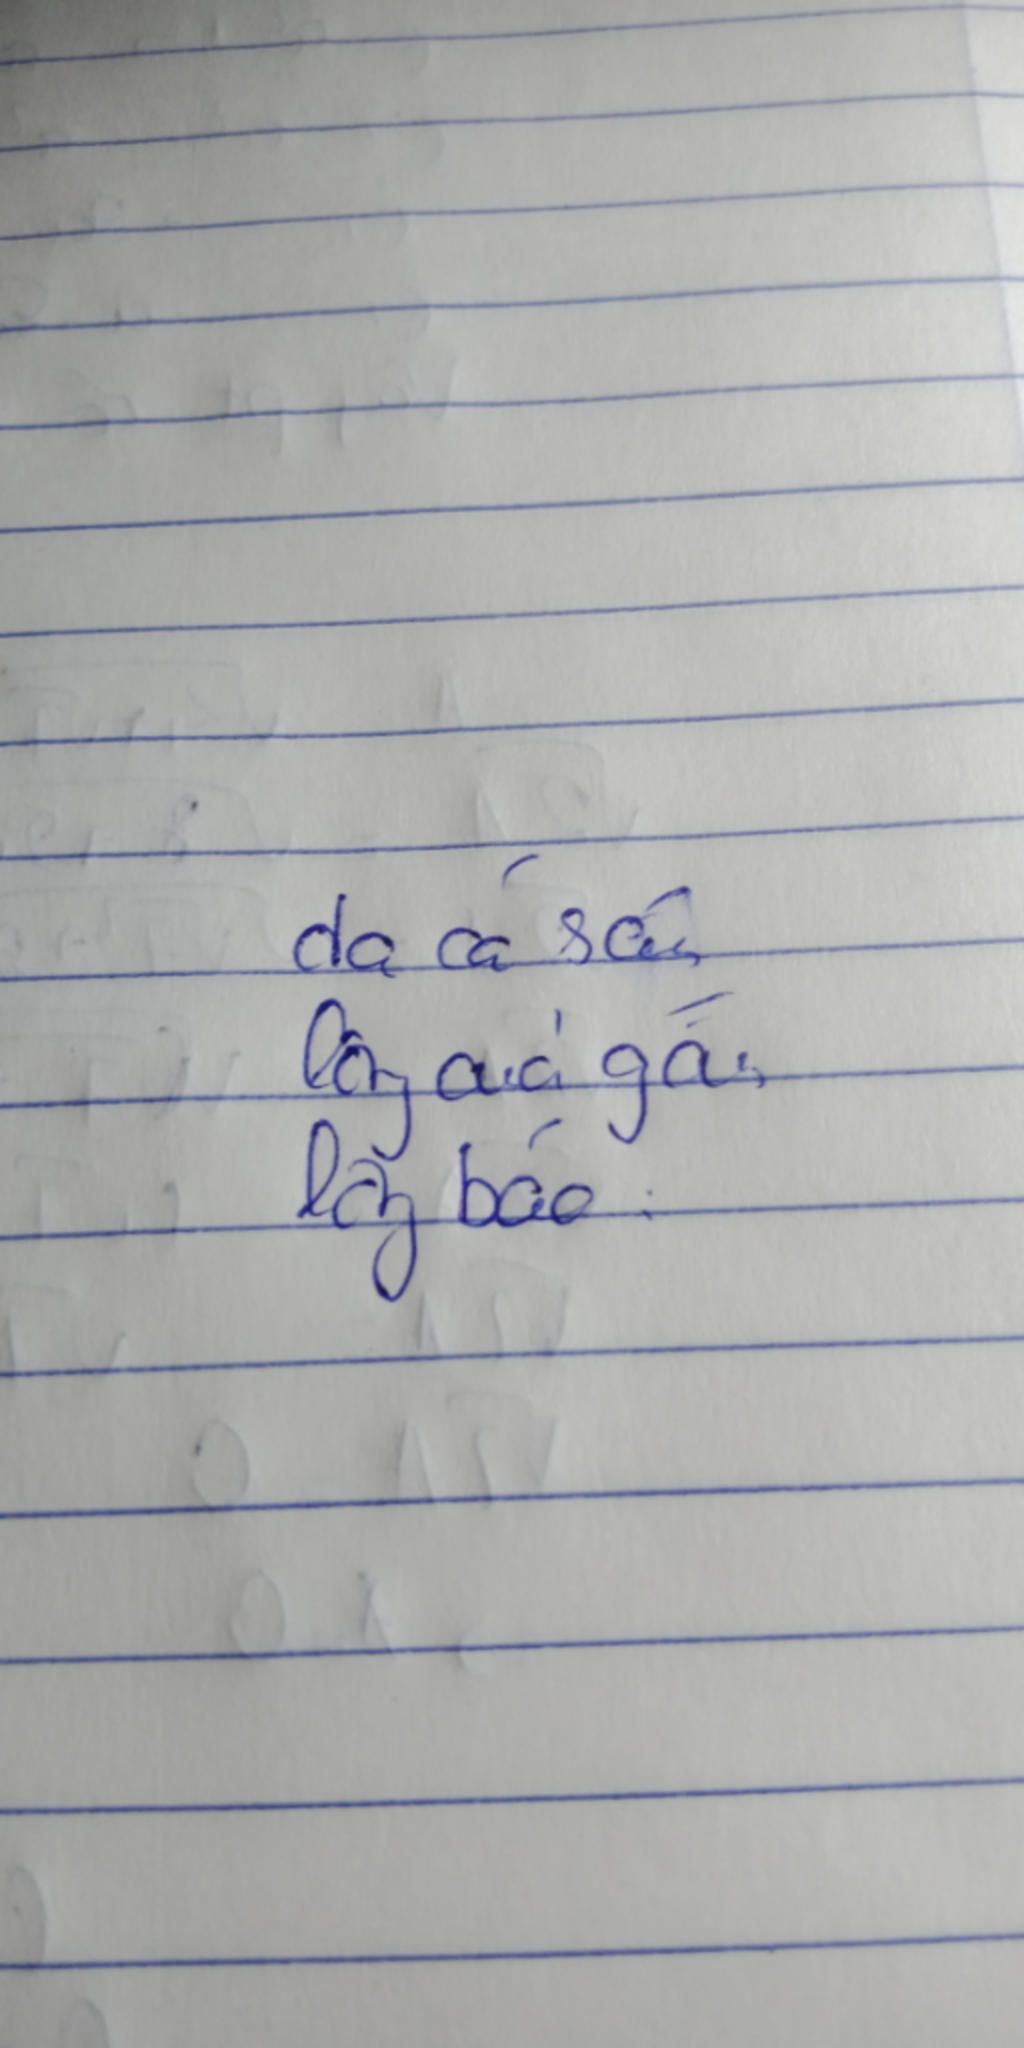 da cá sấu
lông quạ gấu
lông báo.